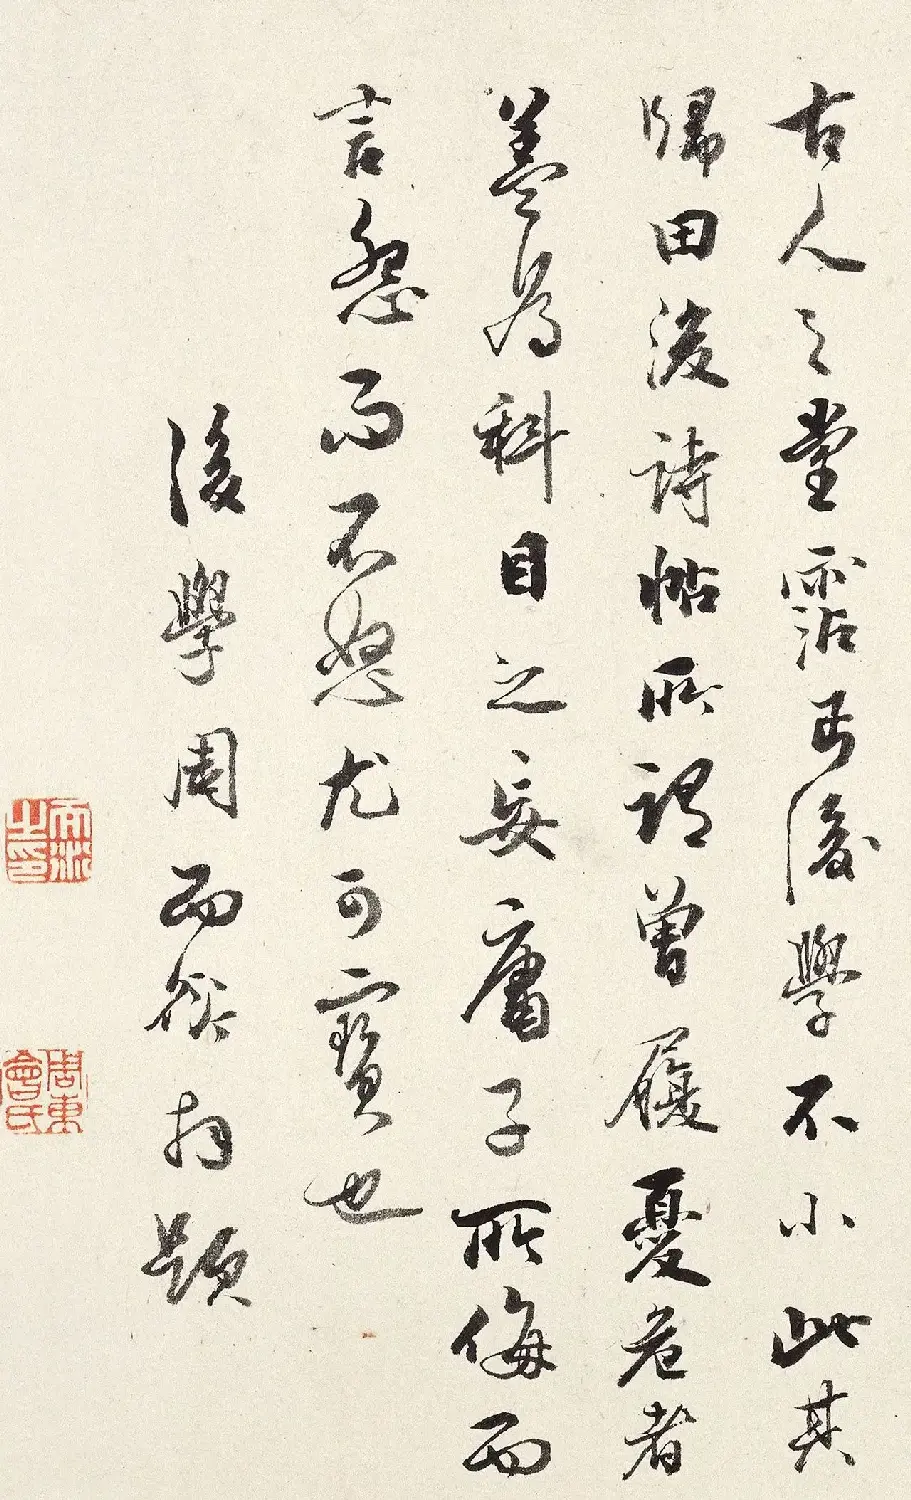 古人之堂霑丐後學不小此其
歸田後詩帖所謂曾履憂危者
盖為科目之妄庸子所侮而
言怨而不怒尤可寶也
後學周而衍拜題
而衍之印
周東會氏